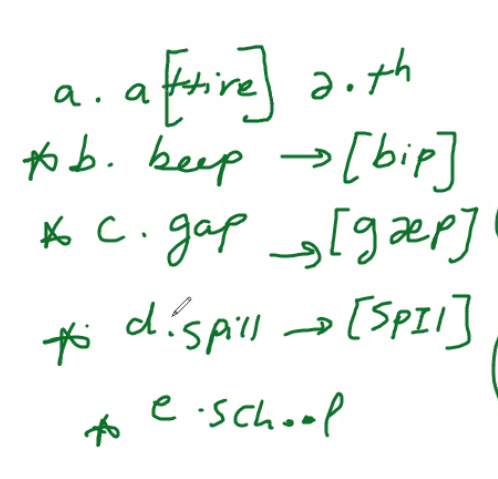 a. a[ttire] ə.tʰ
* b. beep → [bip]
* c. gap → [gæp]
* d. spill → [spɪl]
* e. school